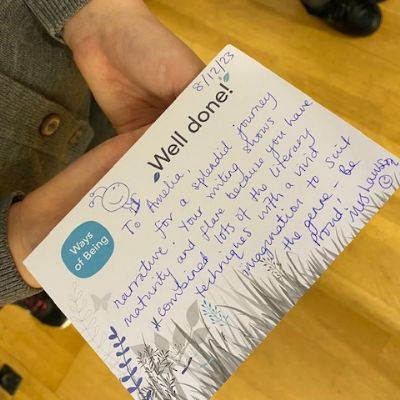 8/12/23
Well done!
To Amelia,
for a splendid journey
narrative! Your writing shows
maturity and flare because you have
*combined lots of the literary
techniques with a vivid
imagination to suit
the genre - Be
Proud!
Ways
of Being